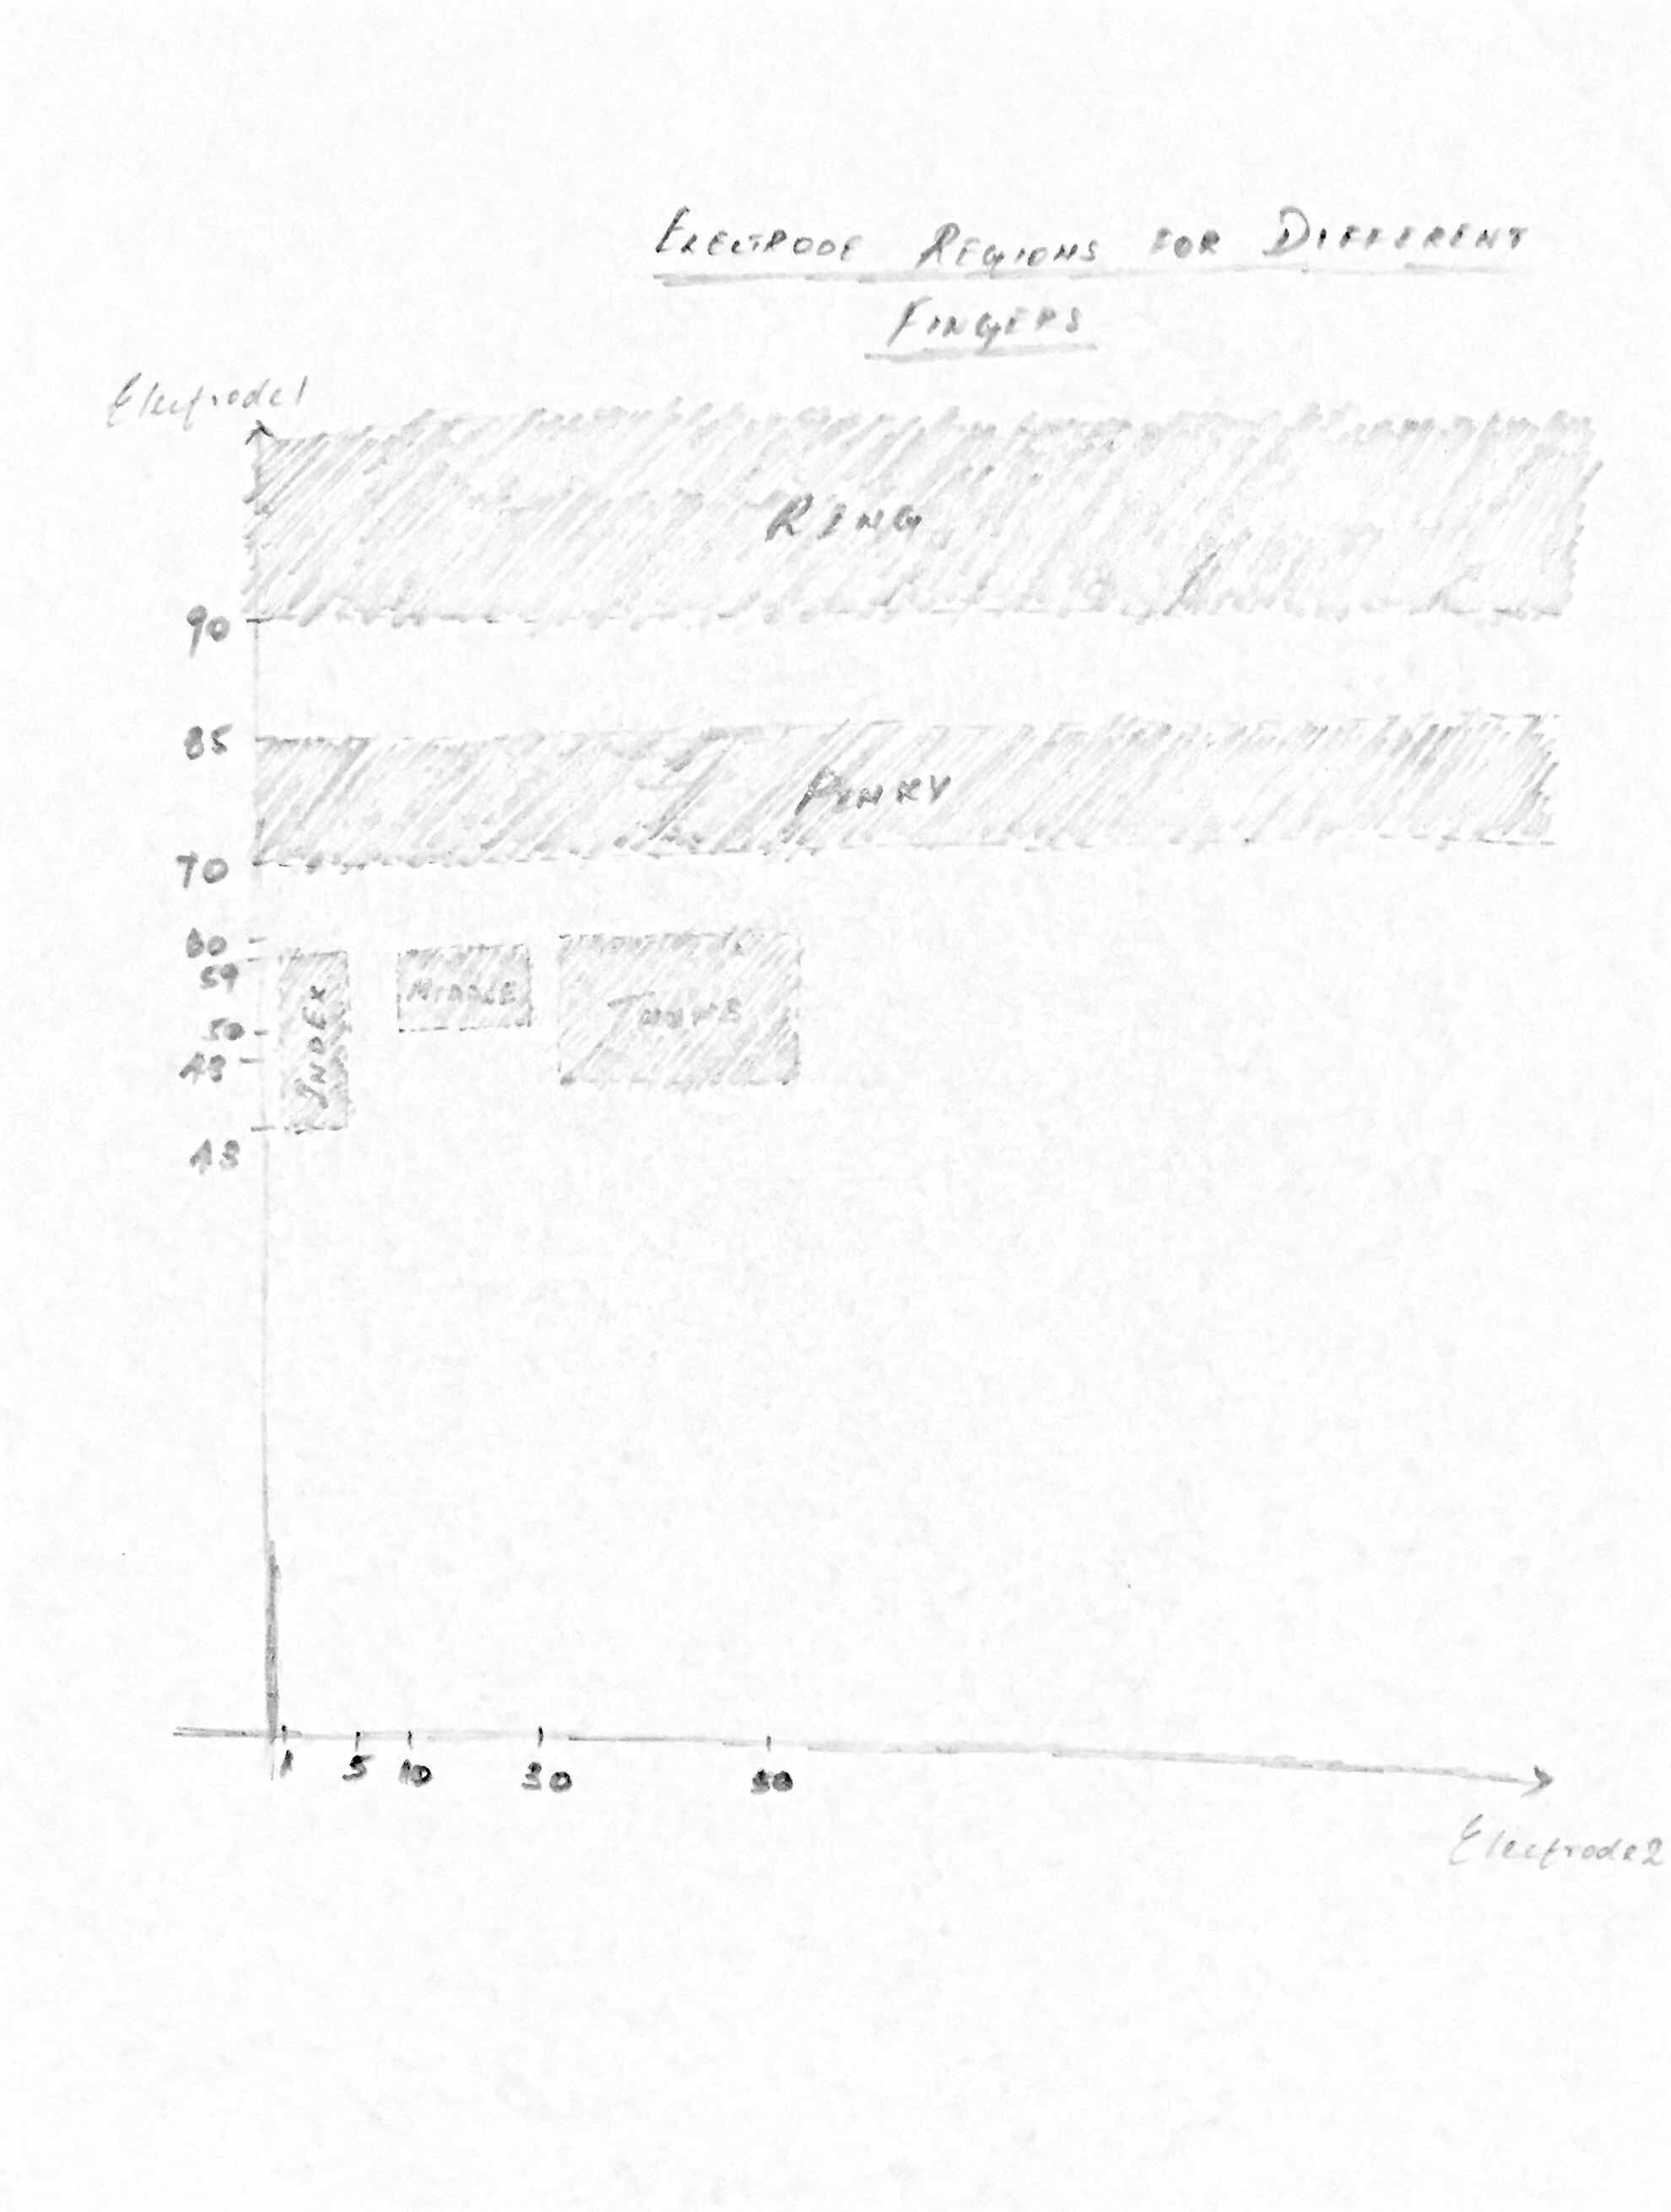 ELECTRODE REGIONS FOR DIFFERENT
FINGERS
Electrode1
RING
90
85
PINKY
70
60
59
MIDDLE
THUMB
INDEX
50
48
43
1 5 10 30 50
Electrode2